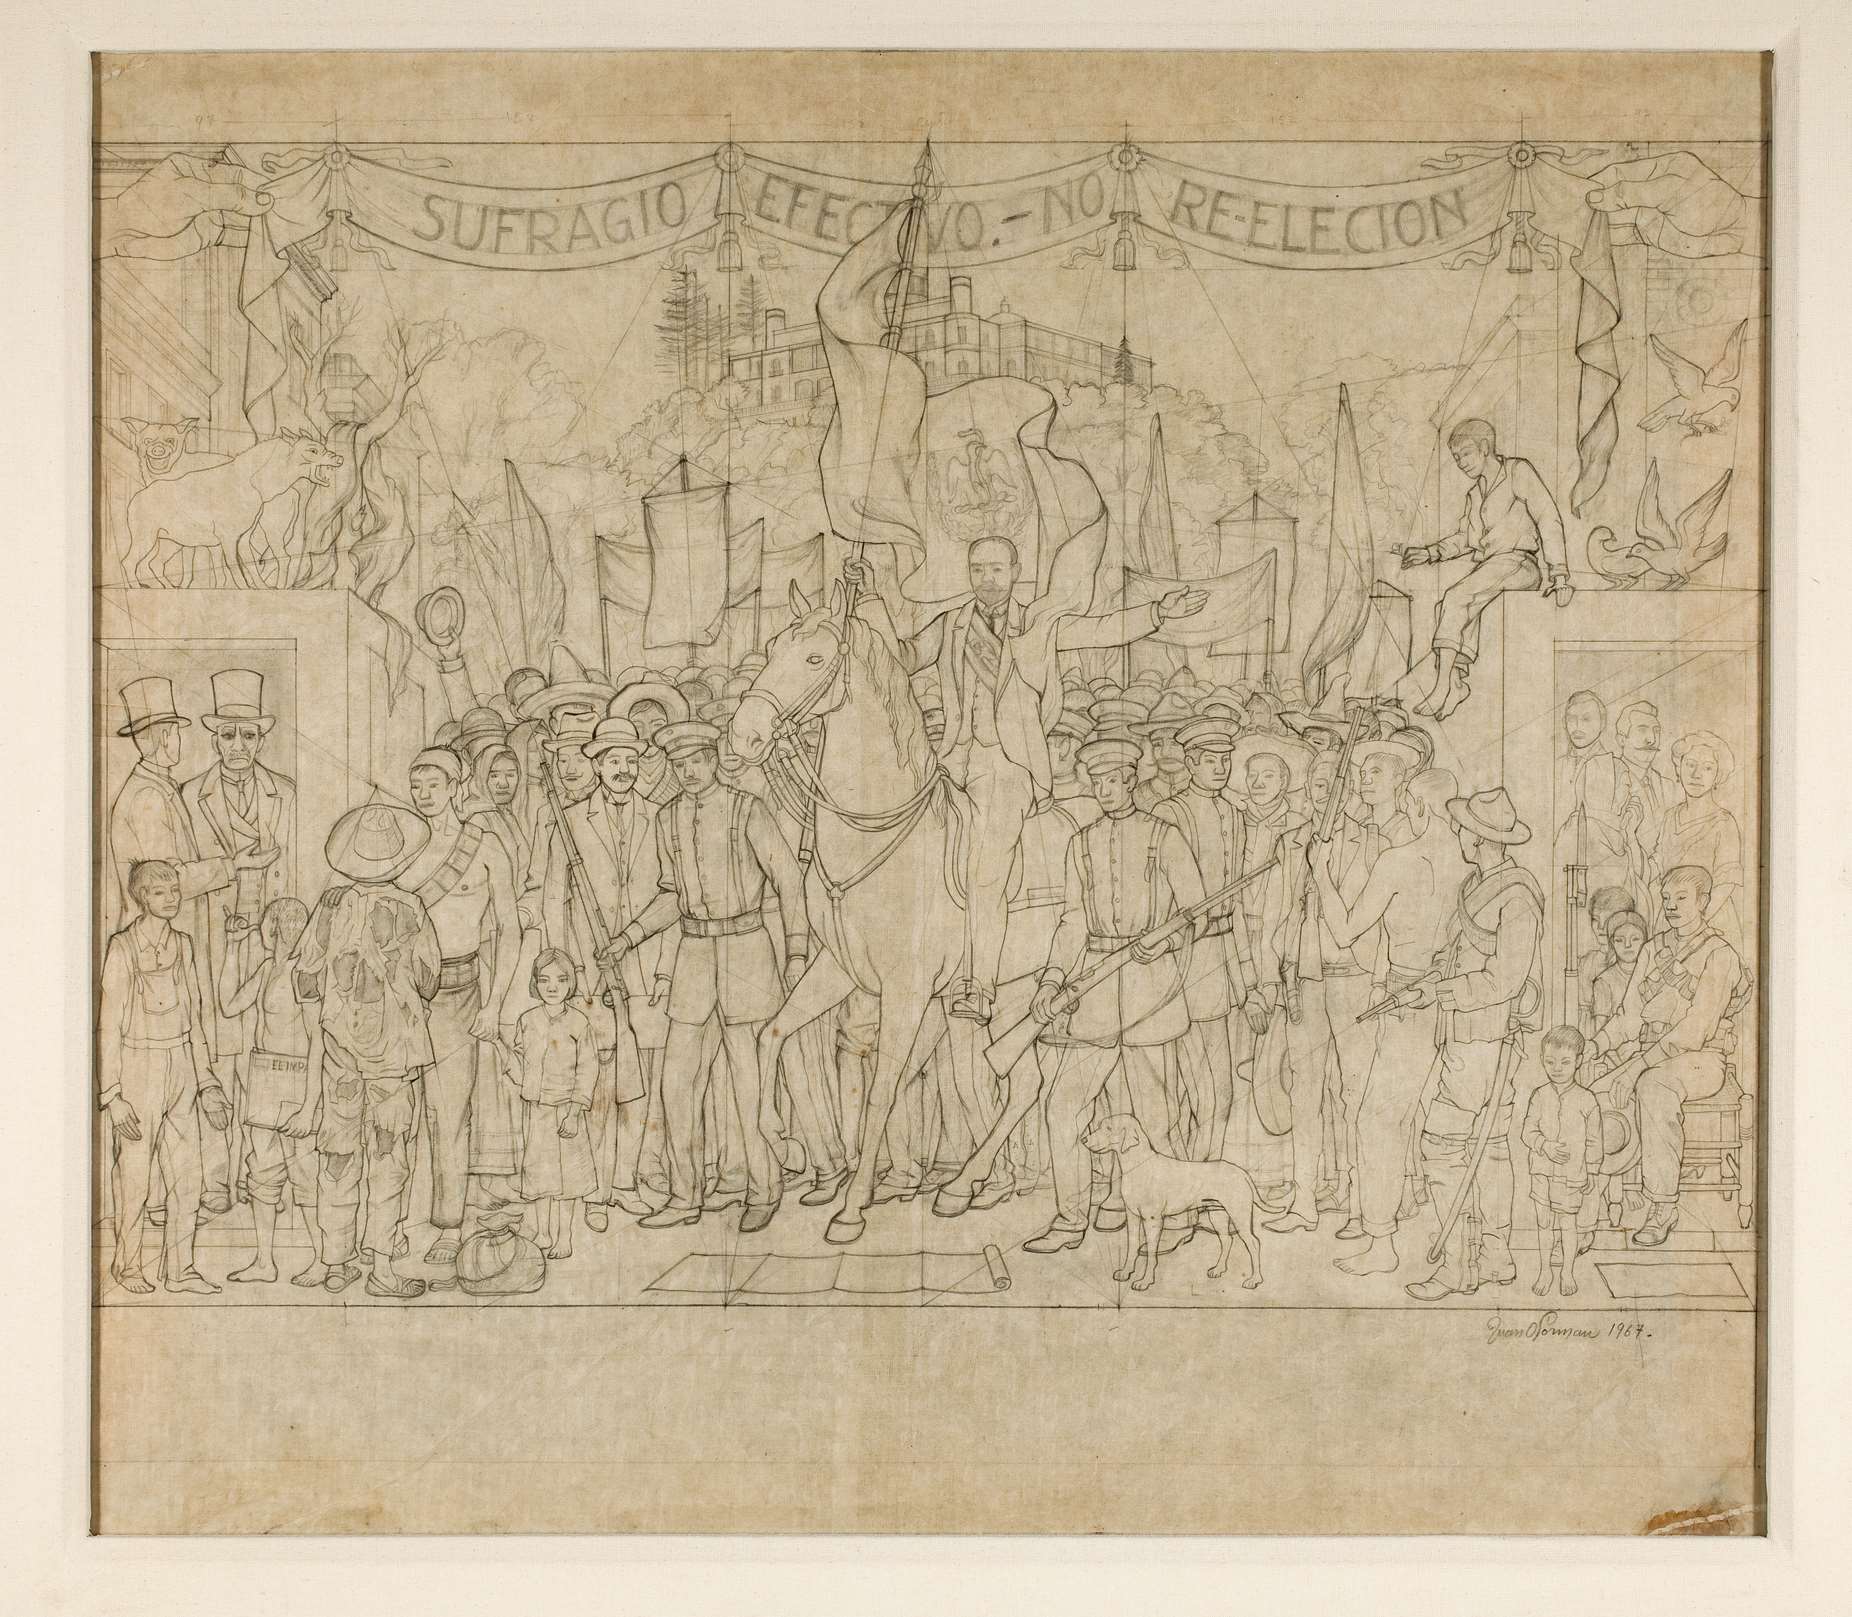 SUFRAGIO EFECTIVO.-NO RE-ELECION
EL IMPA
Juan O'Gorman 1967.